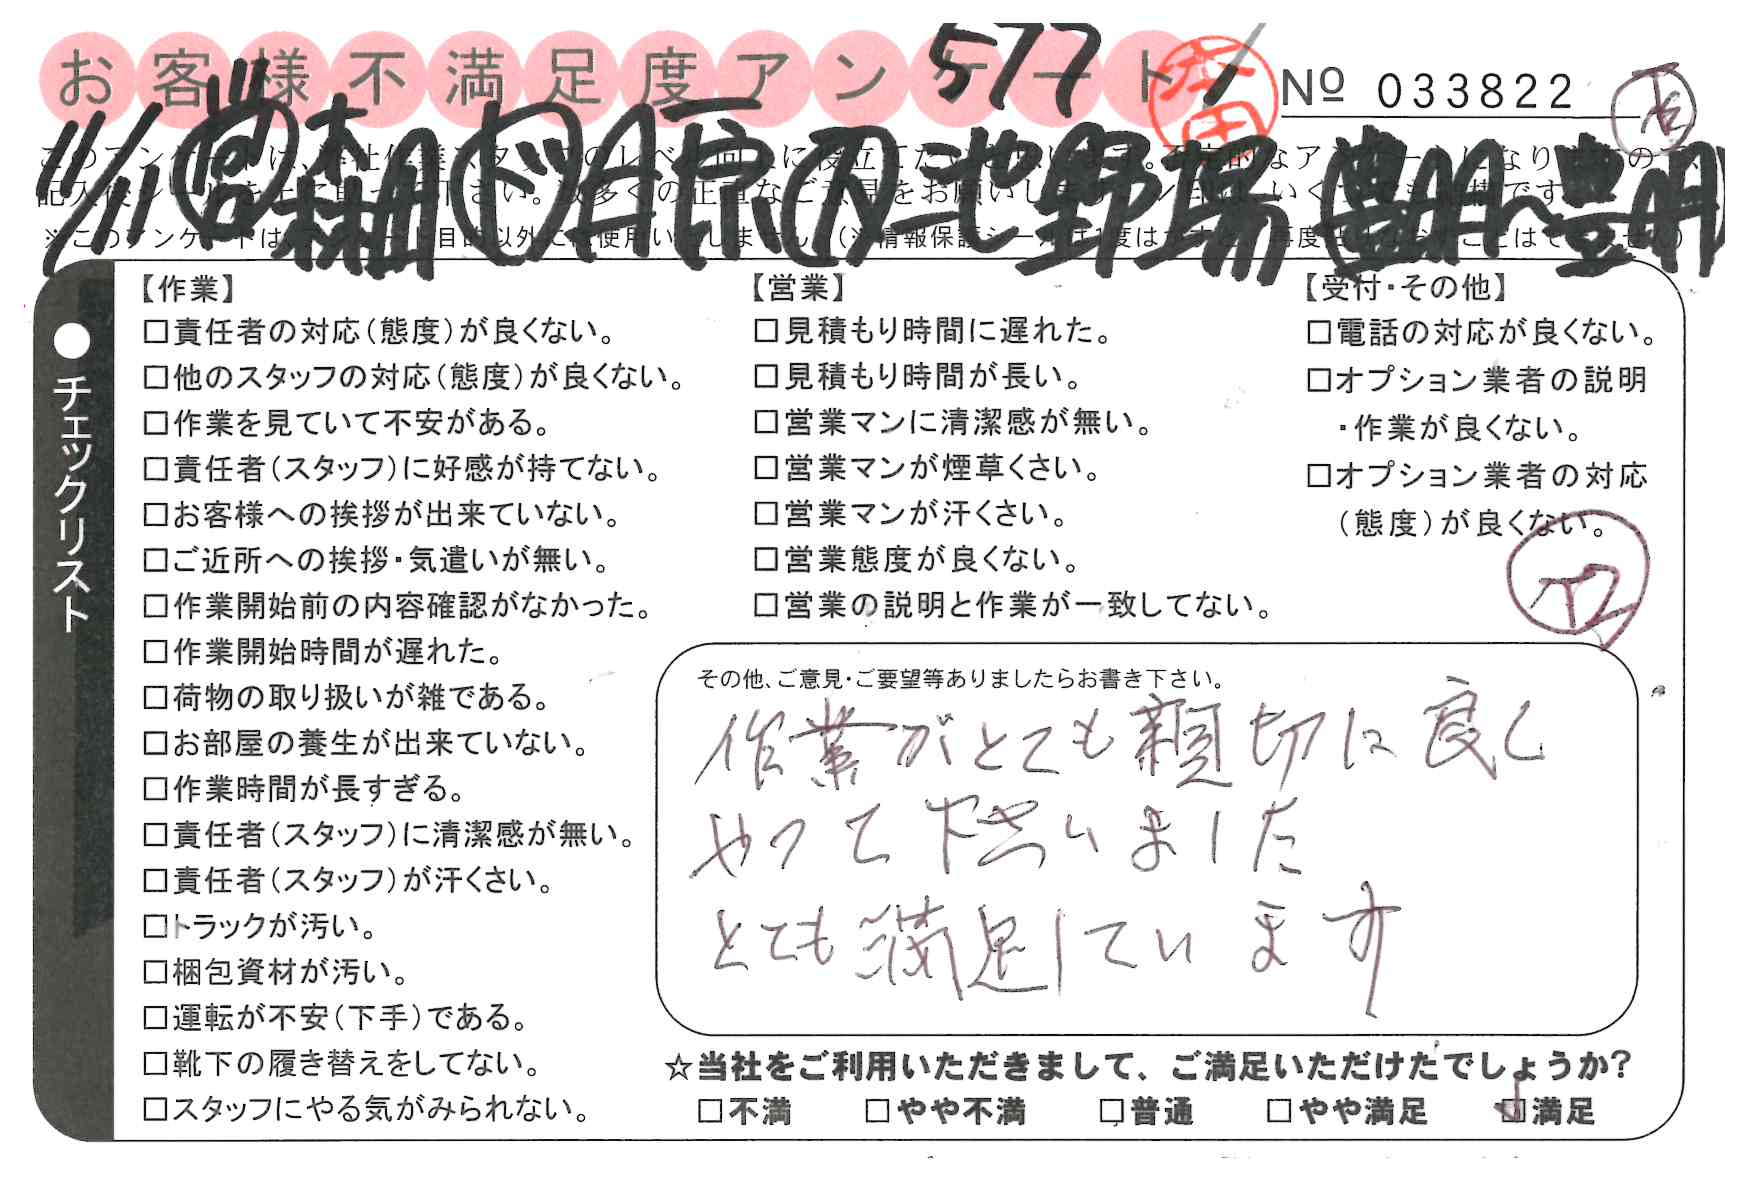 お客様不満足度アンケート
577
№ 033822
11/11
※このアンケートは
【作業】
□責任者の対応(態度)が良くない。
□他のスタッフの対応(態度)が良くない。
□作業を見ていて不安がある。
□責任者(スタッフ)に好感が持てない。
□お客様への挨拶が出来ていない。
□ご近所への挨拶・気遣いが無い。
□作業開始前の内容確認がなかった。
□作業開始時間が遅れた。
□荷物の取り扱いが雑である。
□お部屋の養生が出来ていない。
□作業時間が長すぎる。
□責任者(スタッフ)に清潔感が無い。
□責任者(スタッフ)が汗くさい。
□トラックが汚い。
□梱包資材が汚い。
□運転が不安(下手)である。
□靴下の履き替えをしてない。
□スタッフにやる気がみられない。
【営業】
□見積もり時間に遅れた。
□見積もり時間が長い。
□営業マンに清潔感が無い。
□営業マンが煙草くさい。
□営業マンが汗くさい。
□営業態度が良くない。
□営業の説明と作業が一致してない。
【受付・その他】
□電話の対応が良くない。
□オプション業者の説明
・作業が良くない。
□オプション業者の対応
(態度)が良くない。
●チェックリスト
その他、ご意見・ご要望等ありましたらお書き下さい。
作業がとても親切に良く
やって下さいました
とても満足しています
☆当社をご利用いただきまして、ご満足いただけたでしょうか?
□不満 □やや不満 □普通 □やや満足 ☑満足